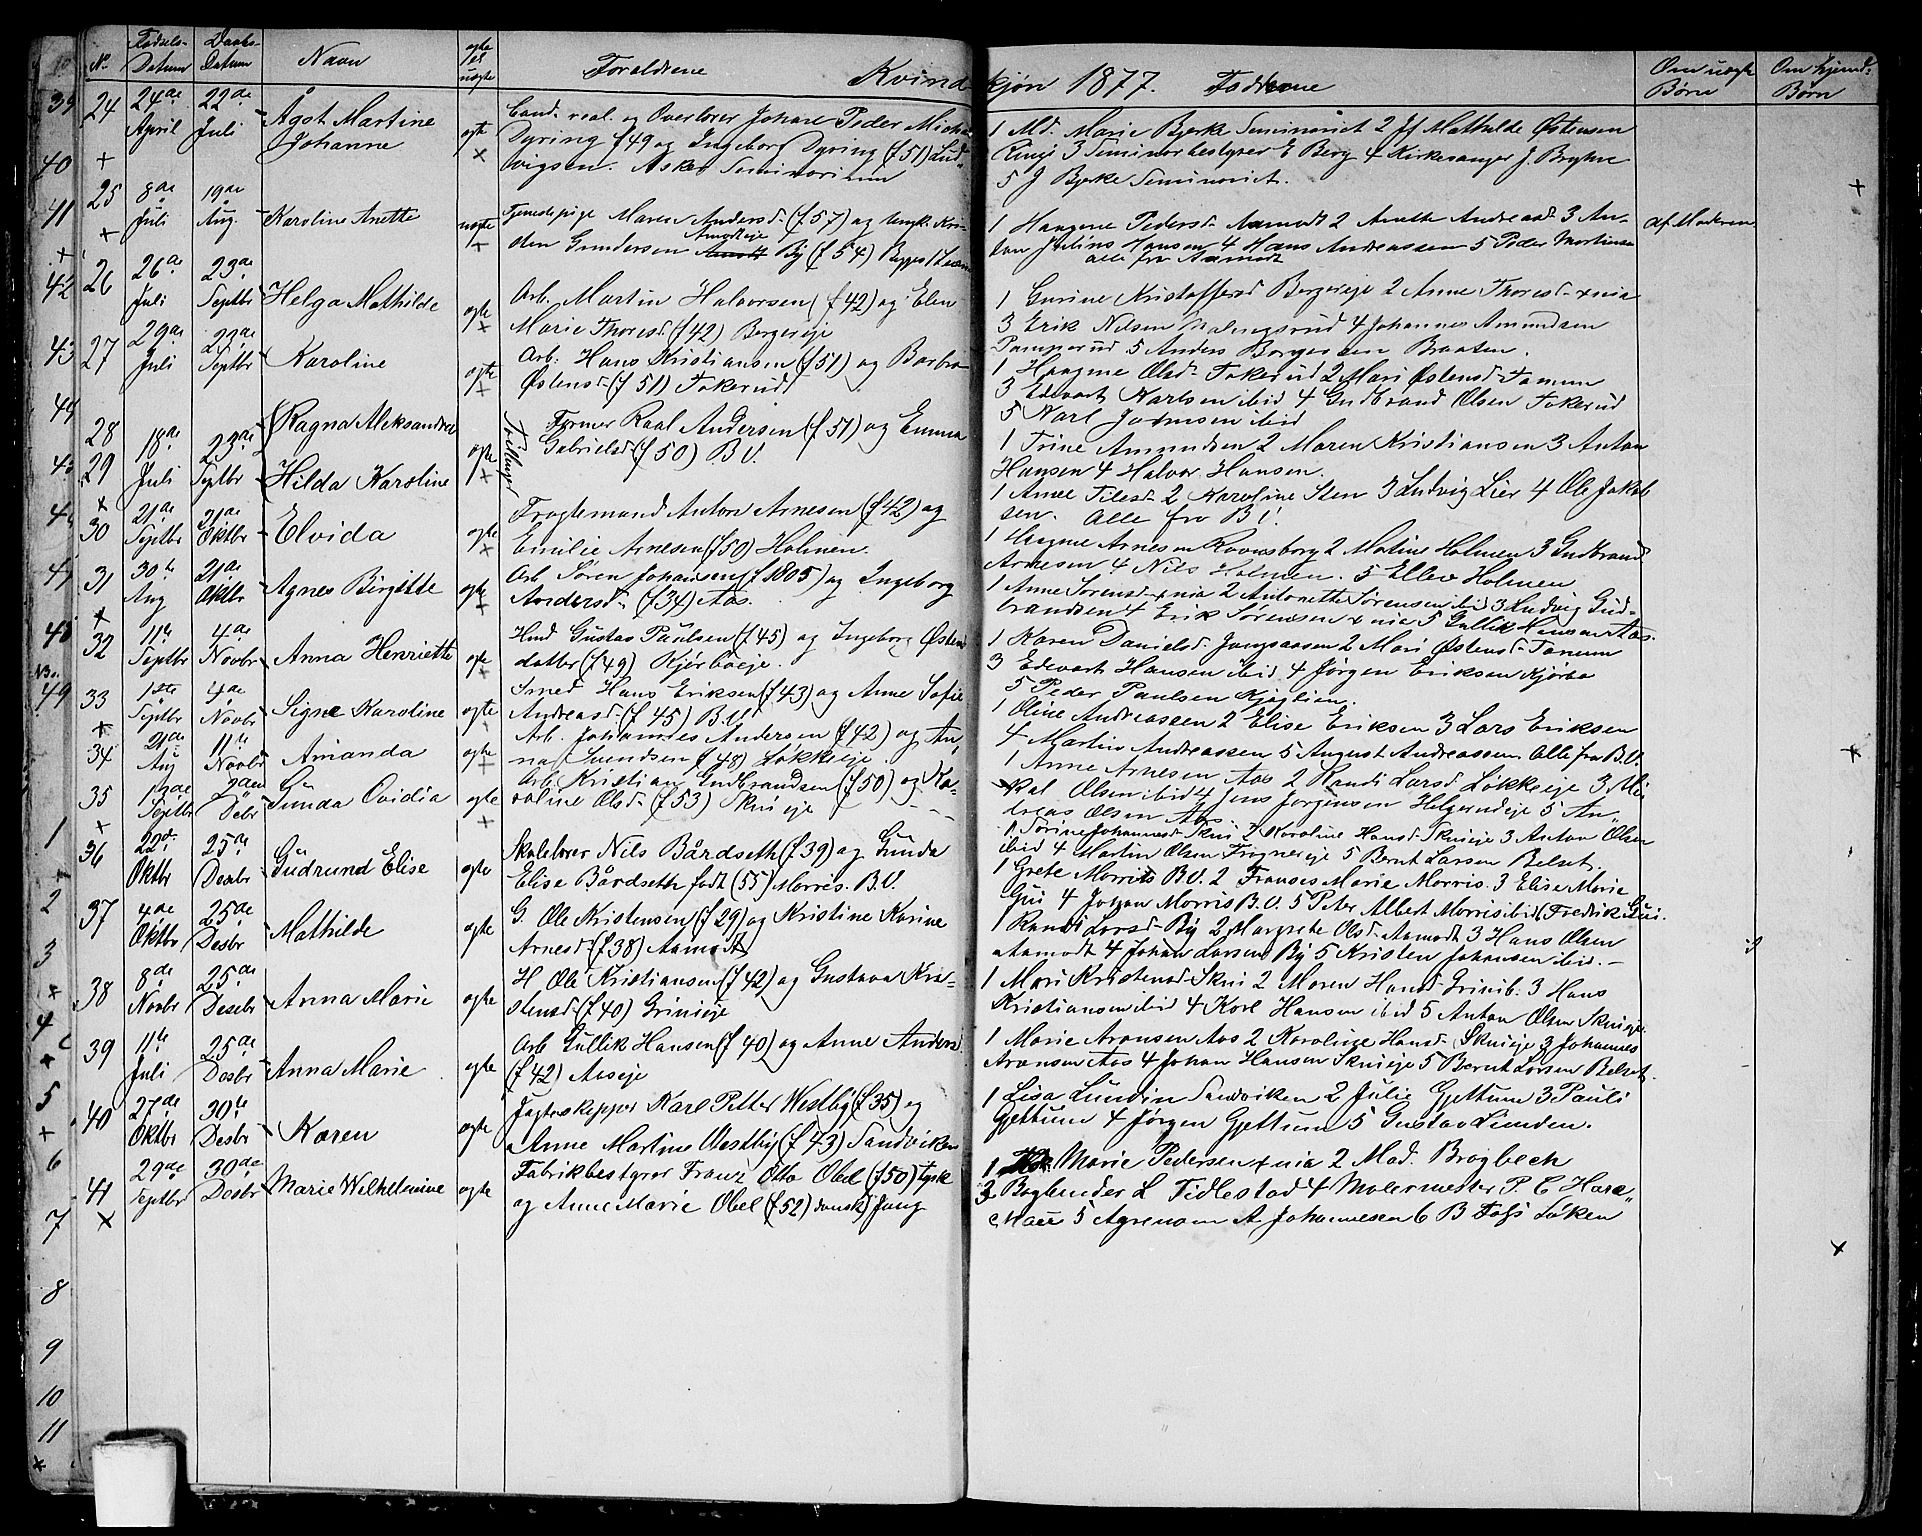 No Fødsels- Datum Daabs- Datum Navn ægte el uægte Forældrene Kvindekjøn 1877. Fadderne Om uægte Børn Om hjemd. Børn
24 24de April 22de Juli Ågot Martine Johanne ægte
Cand. real. og Overlærer Johan Peder
Dyring f 49 og Ingeborg Dyring (f 51) Lud-
vigsen. Asker Seminarium
1 Md. Marie Bjerke Seminariet 2 Jf Mathilde Østensen
Ringi 3 Seminarbestyrer E Berg 4 Kirkesanger J.
5 J Bjerke Seminariet.
25 8de Juli 19de Aug. Karoline Anette uægte
Tjenestepige Maren Andersd. (f 57) og Ungk. Kri-
sten Gundersen By (f 54) Begges 1
1 Haagene Pedersd. Aamodt 2 Anette Andreasd. 3 An-
ton Julius Hansen 4 Hans Andreassen 5 Peder Mortinsen
alle fra Aamodt
af Moderen
26 26de Juli 23de Septbr Helga Mathilde ægte
Arb. Martin Halvorsen (f 42) og Elen
Marie Thoresd (f 42) Bergereje
1 Gurine Kristoffersd Bergereje 2 Anne Thoresd
3 Erik Nilsen 4 Johannes Amundsen
5 Anders Borgersen Braaten.
27 29de Juli 23de Septbr Karoline ægte
Arb. Hans Kristiansen (f 51) og Barbra
Østensd (f 51) Tokerud
1 Haagene Olsd. Tokerud 2 Mari Østensd. Tanum
3 Edevart Karlsen ibid 4 Gudbrand Olsen Tokerud
5 Karl ibid
28 Ragna Aleksandra
29 18de Juli 23de Septbr Hilda Karoline ægte Tvillinger
Former Roal Andersen (f 51) og Emma
Gabrielsd (f 50) B.V.
1 Trine Amundsen 2 Maren Kristiansen 3 Anton
Hansen 4 Halvor Hansen.
1 Anne 2 Karoline Sten 3 Ludvig Lier 4 Ole Jakob-
sen. Alle fra B V.
30 21de Septbr 21de Oktbr Elvida ægte
Anton Arnesen (f 42) og
Emilie Arnesen (f 50) Holmen.
1 Arnesen Ravnsborg 2 Matine Holmen 3 Gudbrand
Arnesen 4 Nils Holmen. 5 Ellev Holmen
31 30te Aug 21de Oktbr Agnes Birgitte ægte
Arb Søren Johansen (f 1805) og Ingeborg
Andersd. (f 34) Aas.
1 Anne Sørensd 2 Antonette Sørensen ibid 3 Ludvig Gud-
brandsen 4 Erik Sørensen 5 Gullik Hansen Aas.
32 11te Septbr 4de Novbr Anna Henriette ægte
Hmd Gustav Paulsen (f 45) og Ingeborg Østens
datter (f 49) Kjørboeje.
1 Karen Danielsd. 2 Mari Østensd. Tanum
3 Edevart Hansen ibid 4 Jørgen Eriksen Kjørbo
5 Peder Paulsen
33 1ste Septbr 4de Novbr Signe Karoline ægte
Smed Hans Eriksen (f 43) og Anne Sofie
Andreasd (f 45) B.V.
1 Oline Andreassen 2 Elise Eriksen 3 Lars Eriksen
4 Martin Andreassen 5 August Andreassen Alle fra B.V.
34 21de Aug 11te Novbr Amanda ægte
Arb. Johannes Andersen (f 42) og An-
na Svendsen (f 48) Løkkeeje
1 Anne Arnesen Aas 2 Randi Larsd Løkkeeje 3
Olsen ibid 4 Jens Jørgensen 5 An-
dreas Olsen Aas
35 Septbr 2den Debr Gunda Ovidia ægte
Arb Kristian Gudbrandsen (f 50) og Ka-
roline Olsd. (f 53) Skuieje
1 Torine Johannesd. Skui 2 Karoline Hansd. Skuieje 3 Anton Olsen
ibid 4 Martin Olsen Frognereje 5 Bernt Larsen Belset.
36 22de Oktbr 25de Desbr Gudrund Elise ægte
Skolelærer Nils Bårdseth (f 39) og Gunda
Elise Bårdseth født (55) Morris. B.V.
1 Grete Morris B.V. 2 Franses Marie Morris. 3 Elise Marie
Gui 4 Johan Morris B.V. 5 Peter Albert Morris ibid (Fredrik Gui.
37 4de Oktbr 25de Desbr Mathilde ægte
G. Ole Kristensen (f 29) og Kristine Karine
Arnesd (f 38) Aamodt
1 Randi Larsd. By 2 Margrete Olsd. Aamodt 3 Hans Olsen
Aamodt 4 Johan Larsen By 5 Kristen Johansen ibid.
38 8de Novbr 25de Desebr Anna Marie ægte
H Ole Kristiansen (f 42) og Gustava Kri-
stensd (f 40) Grinieje
1 Mari Kristensd. Skui 2 Maren Hansd. Grinib. 3 Hans
Kristiansen ibid 4 Karl Hansen ibid 5 Anton Olsen Skuieje.
39 11te Juli 25de Desbr Anna Marie ægte
Arb Gullik Hansen (f 40) og Anne Andersd.
(f 42) Aaseje
1 Marie Aronsen Aas 2 Karoline Hansd. Skuieje 3 Johannes
Aronsen Aas 4 Johan Hansen Skuieje 5 Bernt Larsen Belset.
40 27de Oktbr 30te Desbr Karen ægte
Jagtskipper Karl Petter Westby (f 35) og
Anne Martine Westby (f 43) Sandviken
1 Lisa Lundin Sandviken 2 Julie Gjettum 3 Pauli
Gjettum 4 Jørgen Gjettum 5 Gustav Linden.
41 29de Septbr 30de Desbr Marie Wilhelmine ægte
Fabrikbestyrer Franz Otto Obel (f 50) tysk
og Anne Marie Obel (f 52) dansk) Jong
1 Marie Pedersen 2 Mad. Brogbech
3 Bogbinder L Fidlestad 4 Malermester P. C Hara-
5 Agronom A Johannesen 6 B Løken